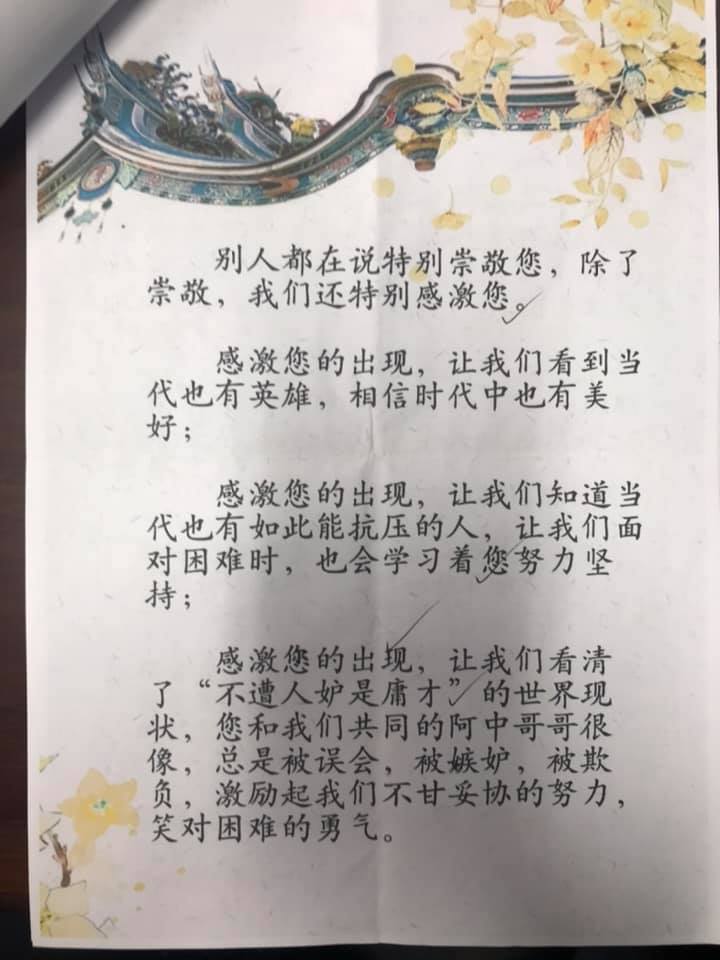 别人都在说特别崇敬您，除了
崇敬，我们还特别感激您。
感激您的出现，让我们看到当
代也有英雄，相信时代中也有美
好；
感激您的出现，让我们知道当
代也有如此能抗压的人，让我们面
对困难时，也会学习着您努力坚
持；
感激您的出现，让我们看清
了“不遭人妒是庸才”的世界现
状，您和我们共同的阿中哥哥很
像，总是被误会，被嫉妒，被欺
负，激励起我们不甘妥协的努力，
笑对困难的勇气。